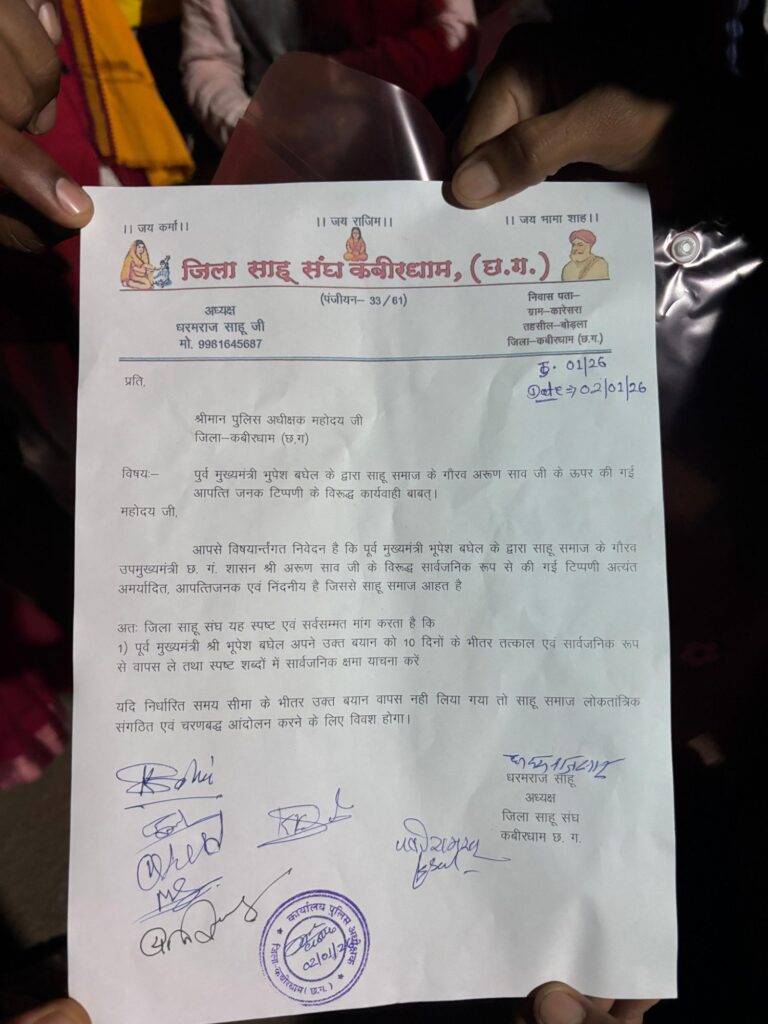 ।। जय कर्मा।।
।। जय राजिम।।
।। जय भामा शाह।।
जिला साहू संघ कबीरधाम, (छ.ग.)
(पंजीयन– 33/61)
अध्यक्ष
धरमराज साहू जी
मो. 9981645687
निवास पता–
ग्राम–कारेसरा
तहसील–बोड़ला
जिला–कबीरधाम (छ.ग.)
क्र. 01/26
Date ⇒ 02/01/26
प्रति,
श्रीमान पुलिस अधीक्षक महोदय जी
जिला–कबीरधाम (छ.ग)
विषयः– पुर्व मुख्यमंत्री भुपेश बघेल के द्वारा साहू समाज के गौरव अरूण साव जी के ऊपर की गई
आपत्ति जनक टिप्पणी के विरूद्ध कार्यवाही बाबत्।
महोदय जी,
आपसे विषयार्न्तगत निवेदन है कि पूर्व मुख्यमंत्री भूपेश बघेल के द्वारा साहू समाज के गौरव
उपमुख्यमंत्री छ. गं. शासन श्री अरूण साव जी के विरूद्ध सार्वजनिक रूप से की गई टिप्पणी अत्यंत
अमर्यादित, आपत्तिजनक एवं निंदनीय है जिससे साहू समाज आहत है
अतः जिला साहू संघ यह स्पष्ट एवं सर्वसम्मत मांग करता है कि
1) पूर्व मुख्यमंत्री श्री भूपेश बघेल अपने उक्त बयान को 10 दिनों के भीतर तत्काल एवं सार्वजनिक रूप
से वापस ले तथा स्पष्ट शब्दों में सार्वजनिक क्षमा याचना करें
यदि निर्धारित समय सीमा के भीतर उक्त बयान वापस नही लिया गया तो साहू समाज लोकतांत्रिक
संगठित एवं चरणबद्ध आंदोलन करने के लिए विवश होगा।
धरमराज साहू
अध्यक्ष
जिला साहू संघ
कबीरधाम छ. ग.
कार्यालय पुलिस अधीक्षक
02/01/26
जिला-कबीरधाम (छ.ग.)